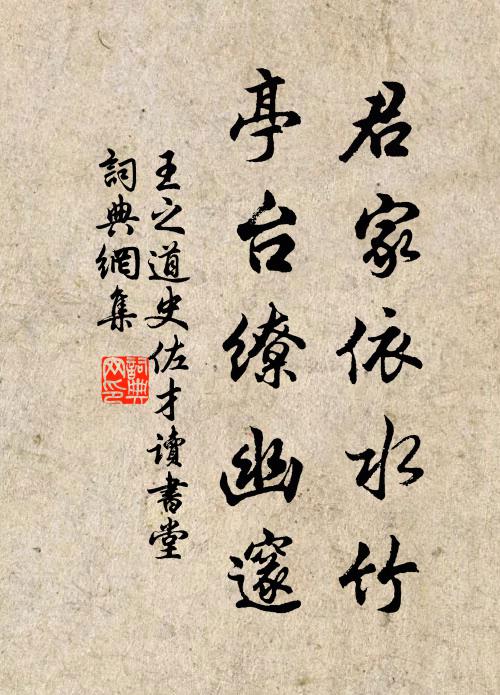 君家依水竹
亭台繚幽邃
王之道史佐才讀書堂
詞典網集
詞典網印